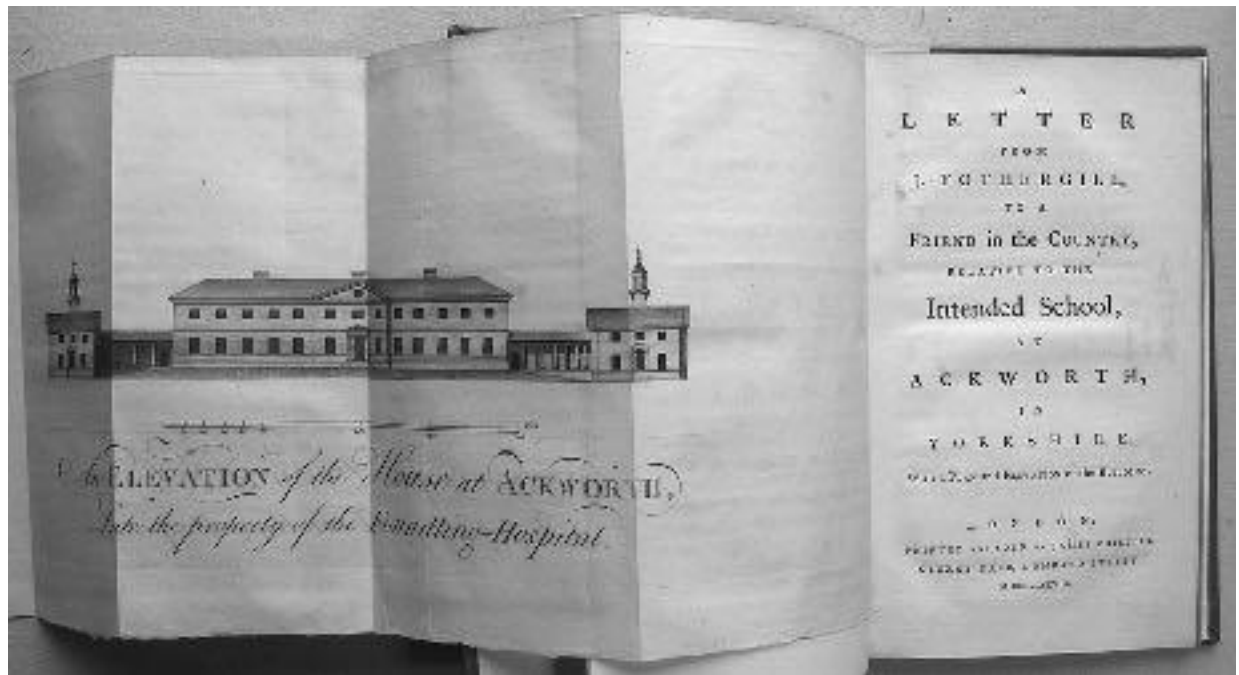 The ELEVATION of the House at ACKWORTH,
late the property of the Foundling-Hospital.
A
LETTER
FROM
J. FOTHERGILL,
TO A
FRIEND in the COUNTRY,
RELATIVE TO THE
Intended School,
AT
ACKWORTH,
IN
YORKSHIRE.
LONDON:
PRINTED AND SOLD BY JAMES PHILLIPS,
GEORGE YARD, LOMBARD STREET